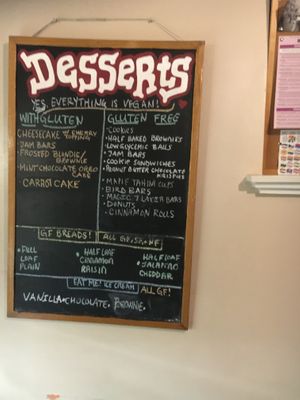 DESSERTS
YES, EVERYTHING IS VEGAN!
WITH GLUTEN
CHEESECAKE W/ CHERRY TOPPING
• JAM BARS
• FROSTED BLONDIE/ BROWNIE
• MINT CHOCOLATE OREO CAKE
CARROT CAKE
GLUTEN FREE
• COOKIES
• HALF BAKED BROWNIES
• LOW GLYCEMIC BALLS
• JAM BARS
• COOKIE SANDWICHES
• PEANUT BUTTER CHOCOLATE KRISPIES
• MAPLE TAHINI CUPS
• BIRD BARS
• MAGIC 7 LAYER BARS
• DONUTS
• CINNAMON ROLLS
GF BREADS!
ALL GF,
• FULL LOAF PLAIN
• HALF LOAF CINNAMON RAISIN
HALF LOAF
• JALAPENO CHEDDAR
EAT ME! ICE CREAM
ALL GF!
VANILLA • CHOCOLATE • BROWNIE •